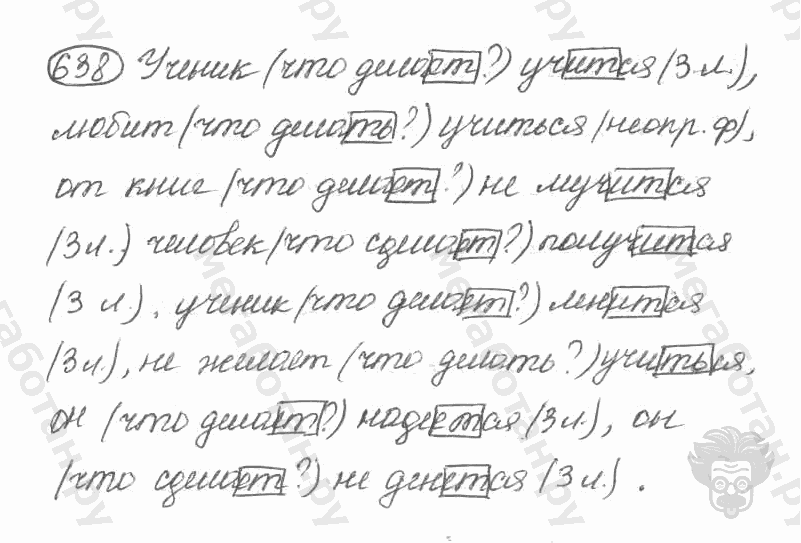 638 Ученик (что делает?) учится (3 л.),
любит (что делать?) учиться (неопр. ф),
от книг (что делает?) не мучится
(3 л.) человек (что сделает?) получится
(3 л.), ученик (что делает?) ленится
(3 л.), не желает (что делать?) учиться,
он (что делает?) надеется (3 л.), он
(что сделает?) не денется (3 л.).
мегаботан.ру